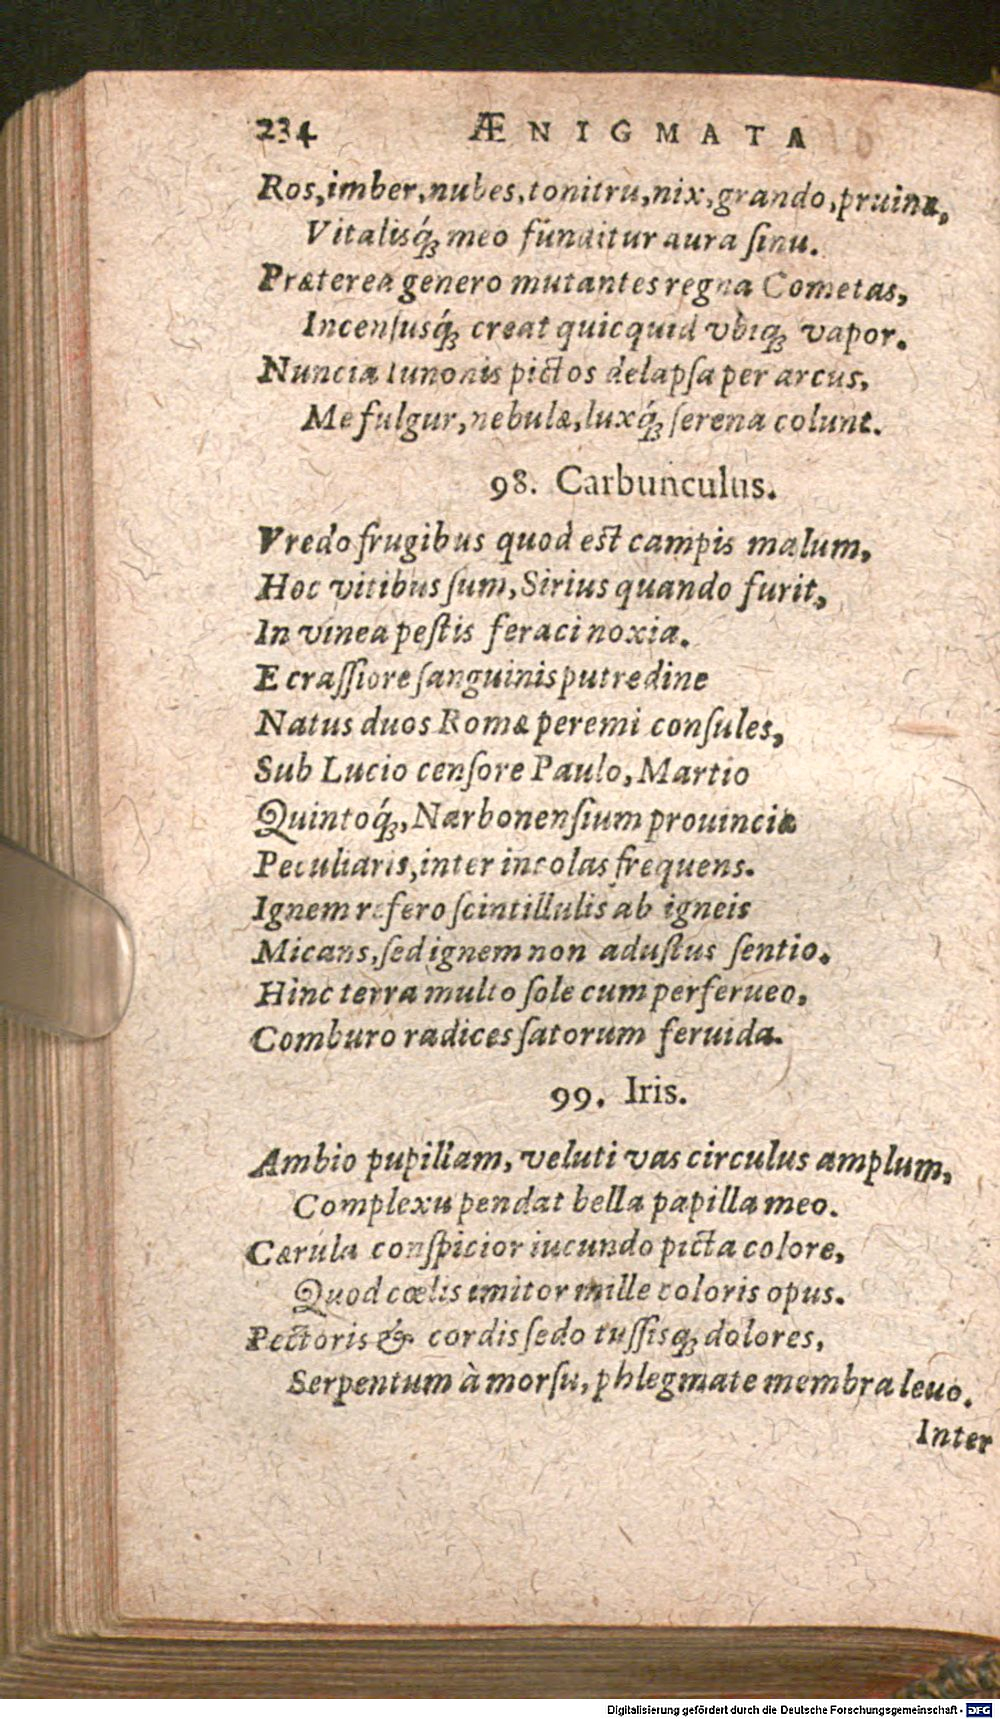 234 ÆNIGMATA
Ros, imber, nubes, tonitru, nix, grando, pruina,
Vitalisq́ꝫ meo funditur aura ſinu.
Præterea genero mutantes regna Cometas,
Incenſusq́ꝫ creat quicquid vbiqꝫ vapor.
Nuncia Iunonis pictos delapſa per arcus,
Me fulgur, nebulæ, luxq́ꝫ ſerena colunt.
98. Carbunculus.
Vredo frugibus quod est campis malum,
Hoc vitibus ſum, Sirius quando furit,
In vinea peſtis feraci noxia.
E craſſiore ſanguinis putredine
Natus duos Romæ peremi conſules,
Sub Lucio cenſore Paulo, Martio
Quintoq́ꝫ, Narbonenſium prouinciæ
Peculiaris, inter incolas frequens.
Ignem refero ſcintillulis ab igneis
Micans, ſed ignem non aduſtus ſentio.
Hinc terra multo ſole cum perferueo,
Comburo radices ſatorum feruida.
99. Iris.
Ambio pupillam, veluti vas circulus amplum,
Complexu pendat bella papilla meo.
Cærula conſpicior iucundo picta colore,
Quod cœlis imitor mille coloris opus.
Pectoris & cordis ſedo tuſſisqꝫ dolores,
Serpentum à morſu, phlegmate membra leuo.
Inter
Digitalisierung gefördert durch die Deutsche Forschungsgemeinschaft - DFG